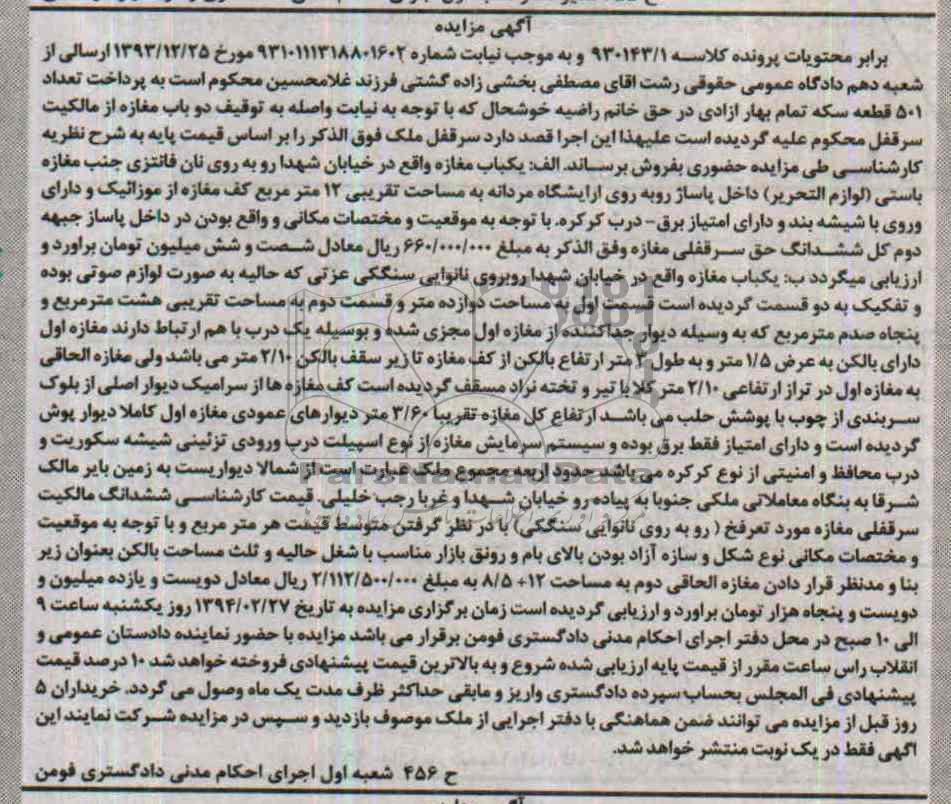 آگهی مزایده
برابر محتویات پرونده کلاسه ۹۳۰۱۴۳/۱ و به موجب نیابت شماره ۹۳۱۰۱۱۱۳۱۸۸۰۱۶۰۲ مورخ ۱۳۹۳/۱۲/۲۵ ارسالی از
شعبه دهم دادگاه عمومی حقوقی رشت اقای مصطفی بخشی زاده گشتی فرزند غلامحسین محکوم است به پرداخت تعداد
۵۰۱ قطعه سکه تمام بهار ازادی در حق خانم راضیه خوشحال که با توجه به نیابت واصله به توقیف دو باب مغازه از مالکیت
سرقفل محکوم علیه گردیده است علیهذا این اجرا قصد دارد سرقفل ملک فوق الذکر را بر اساس قیمت پایه به شرح نظریه
کارشناسی طی مزایده حضوری بفروش برساند. الف: یکباب مغازه واقع در خیابان شهدا رو به روی نان فانتزی جنب مغازه
باستی (لوازم التحریر) داخل پاساژ روبه روی ارایشگاه مردانه به مساحت تقریبی ۱۲ متر مربع کف مغازه از موزائیک و دارای
وروی با شیشه بند و دارای امتیاز برق- درب کرکره. با توجه به موقعیت و مختصات مکانی و واقع بودن در داخل پاساژ جبهه
دوم کل ششدانگ حق سرقفلی مغازه وفق الذکر به مبلغ ۶۶۰/۰۰۰/۰۰۰ ریال معادل شصت و شش میلیون تومان براورد و
ارزیابی میگردد ب: یکباب مغازه واقع در خیابان شهدا روبروی نانوایی سنگکی عزتی که حالیه به صورت لوازم صوتی بوده
و تفکیک به دو قسمت گردیده است قسمت اول به مساحت دوازده متر و قسمت دوم به مساحت تقریبی هشت مترمربع و
پنجاه صدم مترمربع که به وسیله دیوار جداکننده از مغازه اول مجزی شده و بوسیله یک درب با هم ارتباط دارند مغازه اول
دارای بالکن به عرض ۱/۵ متر و به طول ۳ متر ارتفاع بالکن از کف مغازه تا زیر سقف بالکن ۲/۱۰ متر می باشد ولی مغازه الحاقی
به مغازه اول در تراز ارتفاعی ۲/۱۰ متر کلا با تیر و تخته نراد مسقف گردیده است کف مغازه ها از سرامیک دیوار اصلی از بلوک
سربندی از چوب با پوشش حلب می باشد ارتفاع کل مغازه تقریبا ۳/۶۰ متر دیوارهای عمودی مغازه اول کاملا دیوار پوش
گردیده است و دارای امتیاز فقط برق بوده و سیستم سرمایش مغازه از نوع اسپیلت درب ورودی تزئینی شیشه سکوریت و
درب محافظ و امنیتی از نوع کرکره می باشد حدود اربعه مجموع ملک عبارت است از شمالا دیواریست به زمین بایر مالک
شرقا به بنگاه معاملاتی ملکی جنوبا به پیاده رو خیابان شهدا و غربا رجب خلیلی. قیمت کارشناسی ششدانگ مالکیت
سرقفلی مغازه مورد تعرفخ ( رو به روی نانوایی سنگکی) با در نظر گرفتن متوسط قیمت هر متر مربع و با توجه به موقعیت
و مختصات مکانی نوع شکل و سازه آزاد بودن بالای بام و رونق بازار مناسب با شغل حالیه و ثلث مساحت بالکن بعنوان زیر
بنا و مدنظر قرار دادن مغازه الحاقی دوم به مساحت ۱۲+ ۸/۵ به مبلغ ۲/۱۱۲/۵۰۰/۰۰۰ ریال معادل دویست و یازده میلیون و
دویست و پنجاه هزار تومان براورد و ارزیابی گردیده است زمان برگزاری مزایده به تاریخ ۱۳۹۴/۰۲/۲۷ روز یکشنبه ساعت ۹
الی ۱۰ صبح در محل دفتر اجرای احکام مدنی دادگستری فومن برقرار می باشد مزایده با حضور نماینده دادستان عمومی و
انقلاب راس ساعت مقرر از قیمت پایه ارزیابی شده شروع و به بالاترین قیمت پیشنهادی فروخته خواهد شد ۱۰ درصد قیمت
پیشنهادی فی المجلس بحساب سپرده دادگستری واریز و مابقی حداکثر ظرف مدت یک ماه وصول می گردد. خریداران ۵
روز قبل از مزایده می توانند ضمن هماهنگی با دفتر اجرایی از ملک موصوف بازدید و سپس در مزایده شرکت نمایند این
اگهی فقط در یک نوبت منتشر خواهد شد.
ح ۴۵۶ شعبه اول اجرای احکام مدنی دادگستری فومن
ParsNamadData